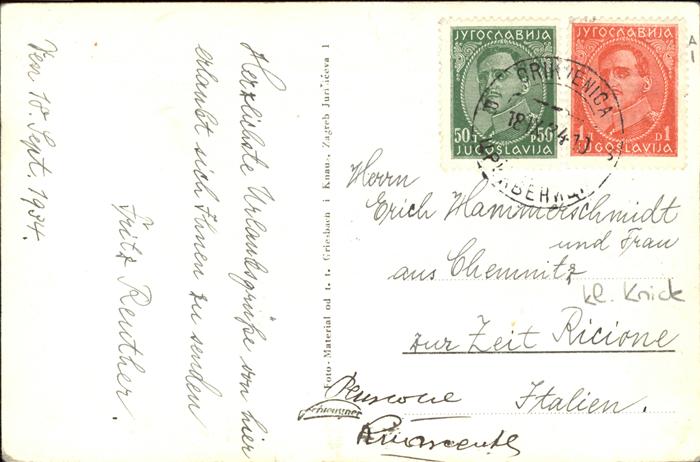 Den 18. Sept. 1934.
Herzlichste Urlaubsgrüße von hier
erlaubt sich Ihnen zu senden
Fritz Reuther.
Foto-Material od t. t. Griesbach i Knaus, Zagreb Jurišićeva 1
ЈУГОСЛАВИЈА
50 P 50
JUGOSLAVIJA
ЈУГОСЛАВИЈА
1 D 1
JUGOSLAVIJA
CRIKVENICA
18 IX 34
ЦРИКВЕНИЦА
A
1
Herrn
Erich Hammerschmidt
und Frau
aus Chemnitz
kl. Knick
zur Zeit Ricione
Italien.
Pensione